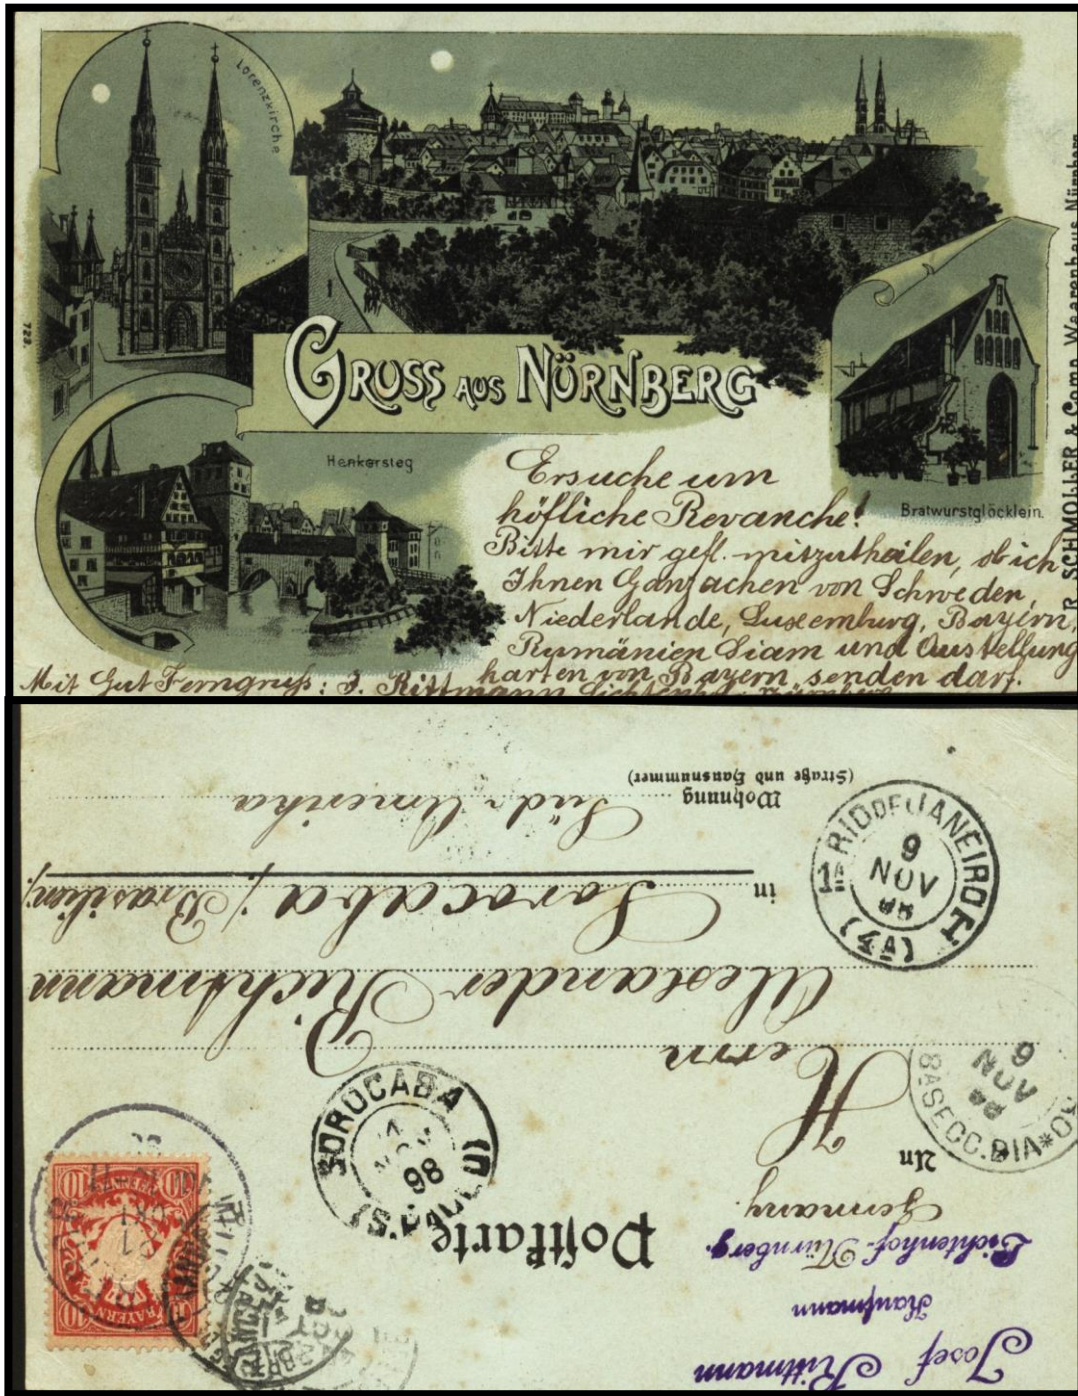 Lorenzkirche
722.
GRUSS AUS NÜRNBERG
Henkersteg
Bratwurstglöcklein.
R. SCHMOLLER & Comp. Waarenhaus Nürnberg
Ersuche um
höfliche Revanche!
Bitte mir gefl. mitzutheilen, ob ich
Ihnen Ganzsachen von Schweden,
Niederlande, Luxemburg, Bayern,
Rumänien Siam und Ausstellung
karten von Bayern senden darf.
Mit Gut Ferngruß: J. Rittmann Lichtenhof Nürnberg
Josef Rittmann
Kaufmann
Lichtenhof-Nürnberg.
Germany.
Postkarte
An
Herrn
Alexander Richtmann
in Sorocaba (Brasilien)
Süd-Amerika
Wohnung
(Straße und Hausnummer)
BAYERN
10
10
10
10
SOROCABA
98
(S. PAULO)
RIO DE JANEIRO
1A
9
NOV
98
(4A)
T
8A SECC. DIA
9
NOV
98
OCT